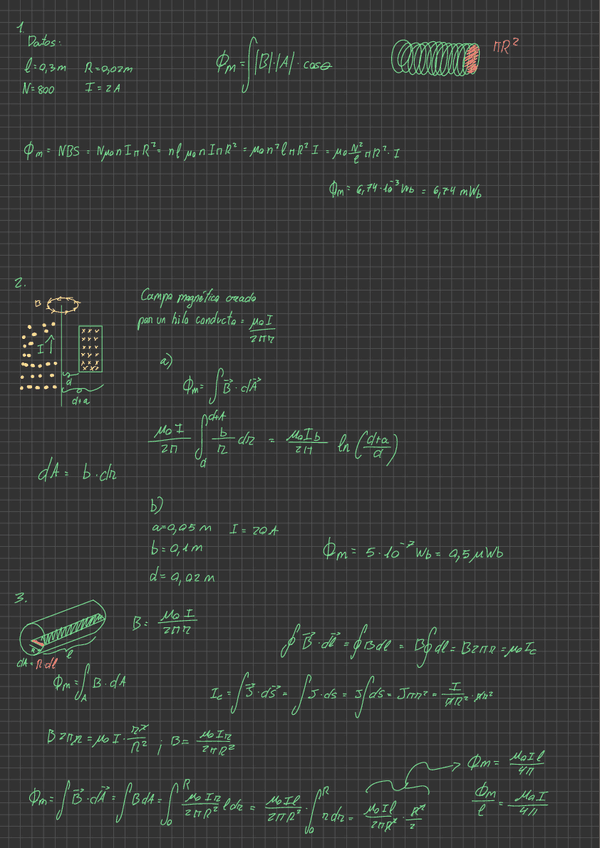 1.
Datos:
l=0,3m R=0,02m
N=800 I=2A
ϕm = ∫|B|·|A|·cosθ
πR²
ϕm = NBS = Nμ₀nIπR² = nlμ₀nIπR² = μ₀n²lπR²I = μ₀ N²/l πR²·I
ϕm = 6,74·10⁻³ Wb = 6,74 mWb
2.
B
I
d
d+a
Campo magnético creado
por un hilo conducto = μ₀I/2πr
a)
ϕm = ∫B⃗·dA⃗
μ₀I/2π ∫_d^{d+A} b/r dr = μ₀Ib/2π ln((d+a)/d)
dA = b·dr
b)
a=0,05m I=20A
b=0,1m
d=0,02m
ϕm = 5·10⁻⁷ Wb = 0,5 μWb
3.
l
dA = R·dl
B = μ₀I/2πr
∮B⃗·dl⃗ = ∮Bdl = B∮dl = B2πr = μ₀Ic
ϕm = ∫_A B·dA
Ic = ∫J⃗·ds⃗ = ∫J·ds = J∫ds = Jπr² = I/πR² · πr²
B2πr = μ₀I· r²/R² ; B = μ₀Ir/2πR²
ϕm = ∫B⃗·dA⃗ = ∫BdA = ∫_0^R μ₀Ir/2πR² ldr = μ₀Il/2πR² · ∫_0^R rdr = μ₀Il/2πR² · R²/2
ϕm = μ₀Il/4π
ϕm/l = μ₀I/4π